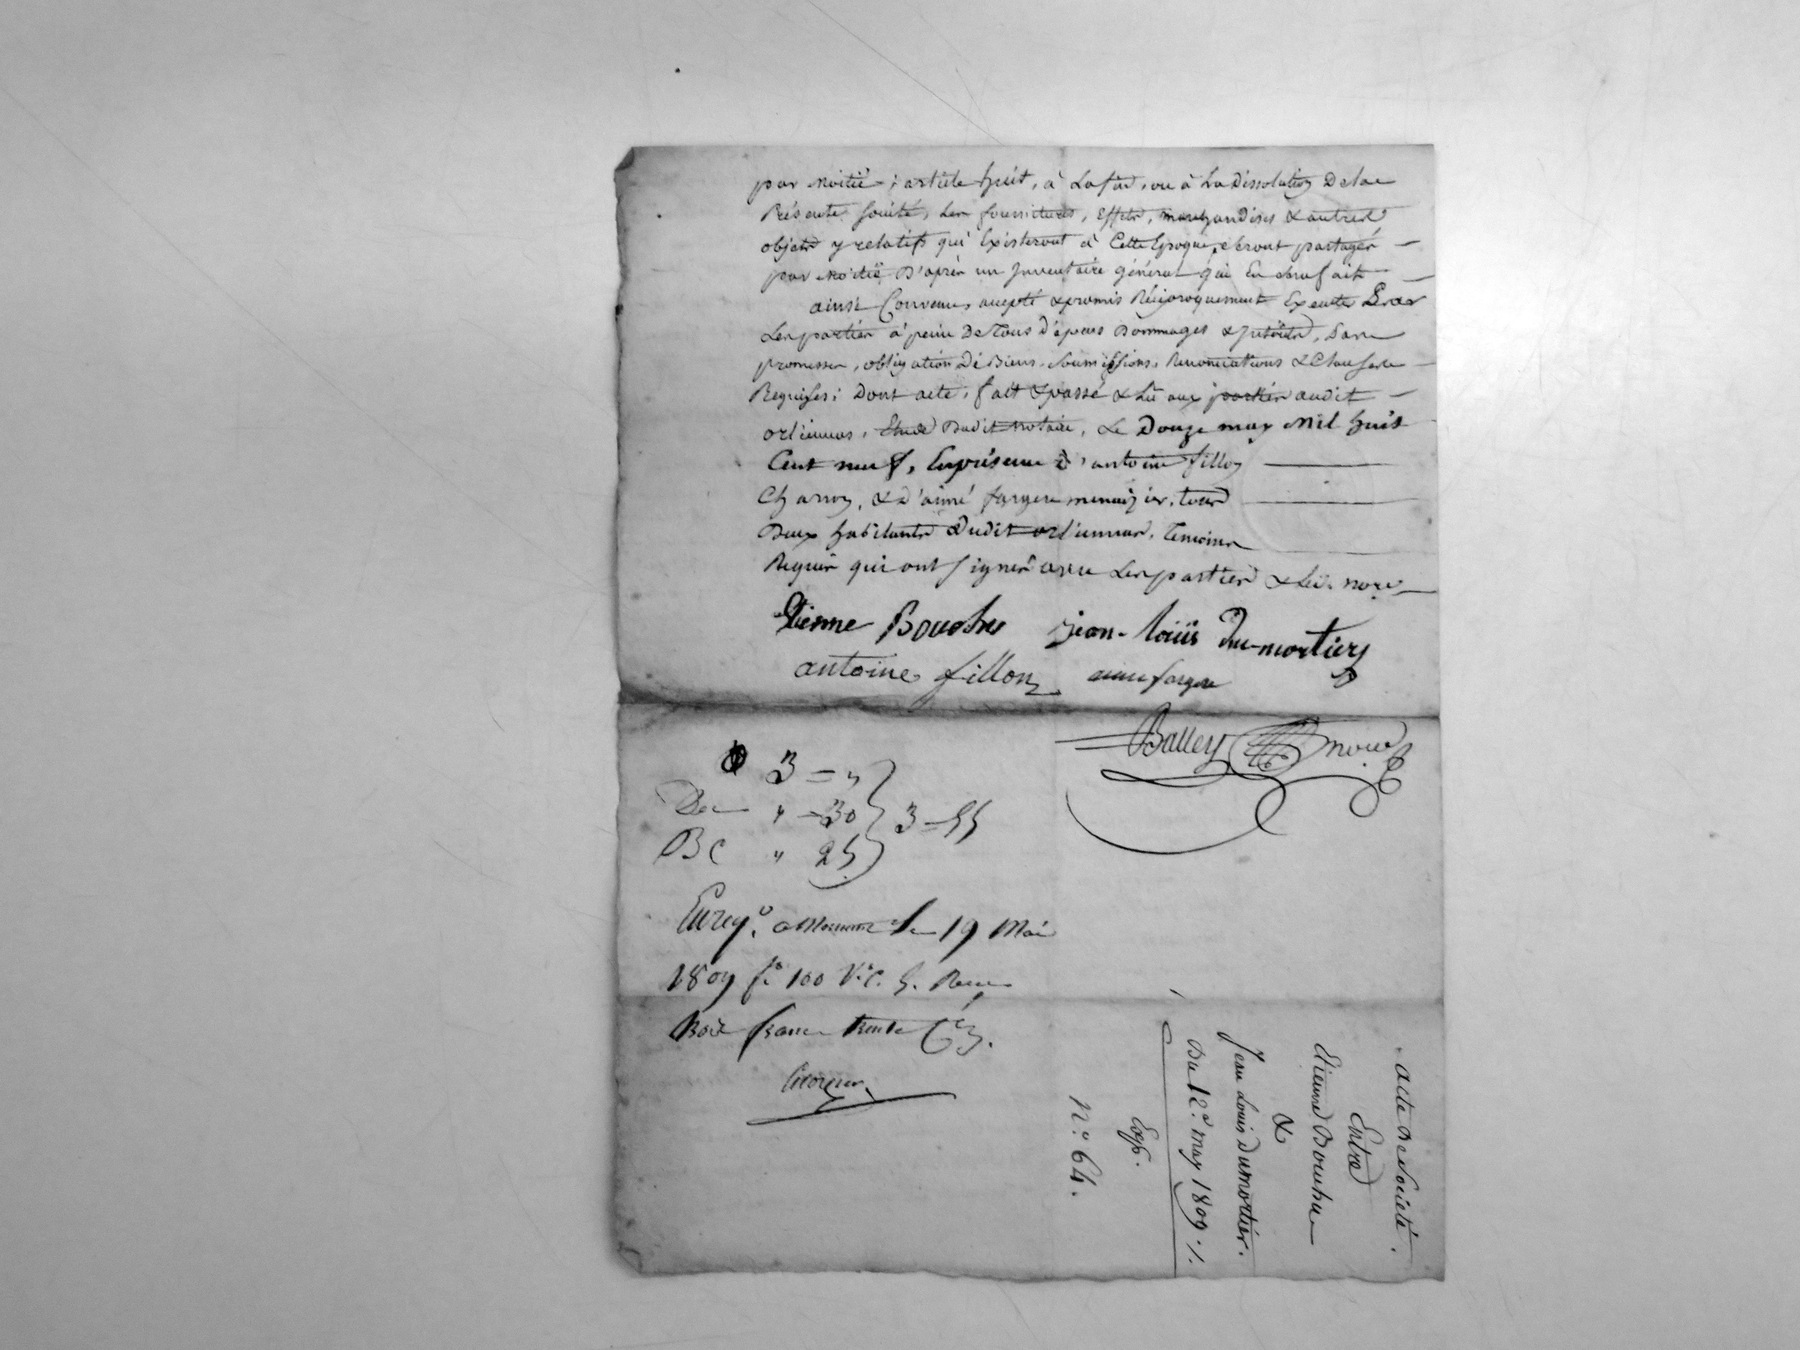 par moitié; article huit, à la fin, ou à la dissolution de la
présente société, les fournitures, effets, marchandises & autres
objets y relatifs qui existeront à cette époque, seront partagés
par moitié d'après un inventaire général qui en sera fait
ainsi convenu, accepté & promis réciproquement exécuter par
les parties à peine de tous dépens dommages & intérêts, sous
promesses, obligation de biens, soumissions, renonciations & clauses
requises; dont acte, fait & passé & lu aux parties audit
orliénas, étude dudit notaire, le douze may mil huit
cent neuf, en présence d'antoine fillon
charron, & d'aimé fargere menuizier, tous
deux habitants dudit orliénas, témoins
requis qui ont signés avec les parties & led. nore
Etienne Bouchu jean-louis Du-mortier
antoine fillon aimé fargere
Balley nore
3 = "
Dec " - 30 3 - 55
BC " 25
Enregé. a Mornant le 19 Mai
1809 fo 100 Vo C. 5. Recu
trois francs trente Ces.
acte de société.
Entre
Etienne Bouchu
&
Jean Louis dumortier.
Du 12e. may 1809./.
Exp.
No. 64.